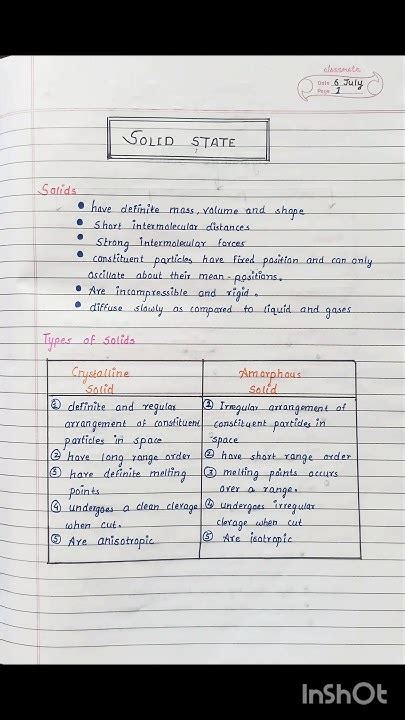 classmate
Date 6 July
Page 1
SOLID STATE
Solids
have definite mass, volume and shape
Short intermolecular distances
Strong intermolecular forces
constituent particles have fixed position and can only
oscillate about their mean-positions.
Are incompressible and rigid.
diffuse slowly as compared to liquid and gases
Types of Solids
Crystalline
Solid
① definite and regular
arrangement of constituent
particles in space
② have long range order
③ have definite melting
points
④ undergoes a clean clerage
when cut.
⑤ Are anisotropic
Amorphous
Solid
① Irregular arrangement of
constituent particles in
space
② have short range order
③ melting points occurs
over a range.
④ undergoes irregular
clerage when cut
⑤ Are isotropic
InShOt